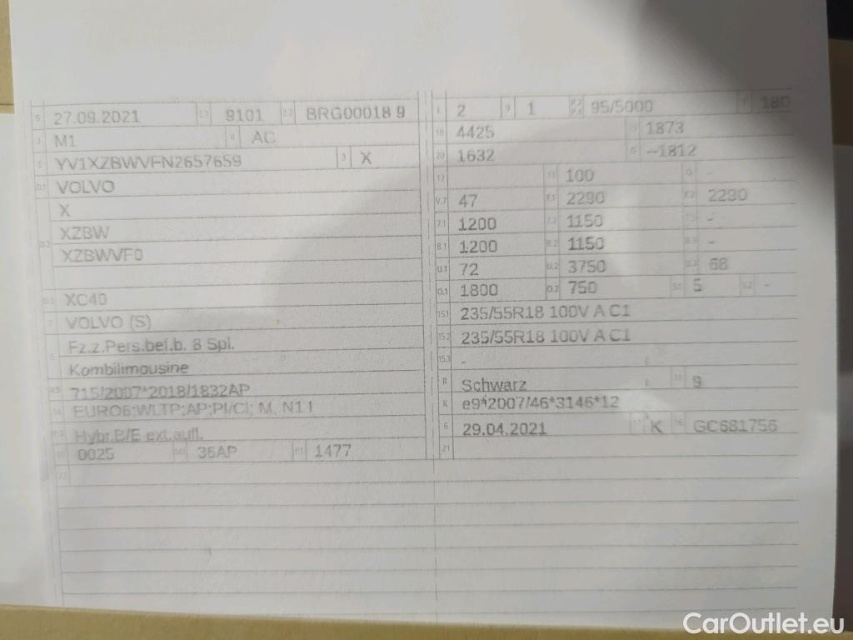 27.09.2021 9101 BRG00018 9
M1 AC
YV1XZBWVFN2657659 X
VOLVO
X
XZBW
XZBWVF0
XC40
VOLVO (S)
Fz.z.Pers.bef.b. 8 Spl.
Kombilimousine
715/2007*2018/1832AP
EURO6;WLTP;AP;PI/CI; M, N1 I
Hybr.B/E ext.aufl.
0025 36AP 1477
2 1 95/5000 180
4425 1873
1632 –1812
100 -
47 2290 2290
1200 1150 -
1200 1150 -
72 3750 68
1800 750 5 -
235/55R18 100V A C1
235/55R18 100V A C1
-
Schwarz 9
e9*2007/46*3146*12
29.04.2021 K GC681756
CarOutlet.eu